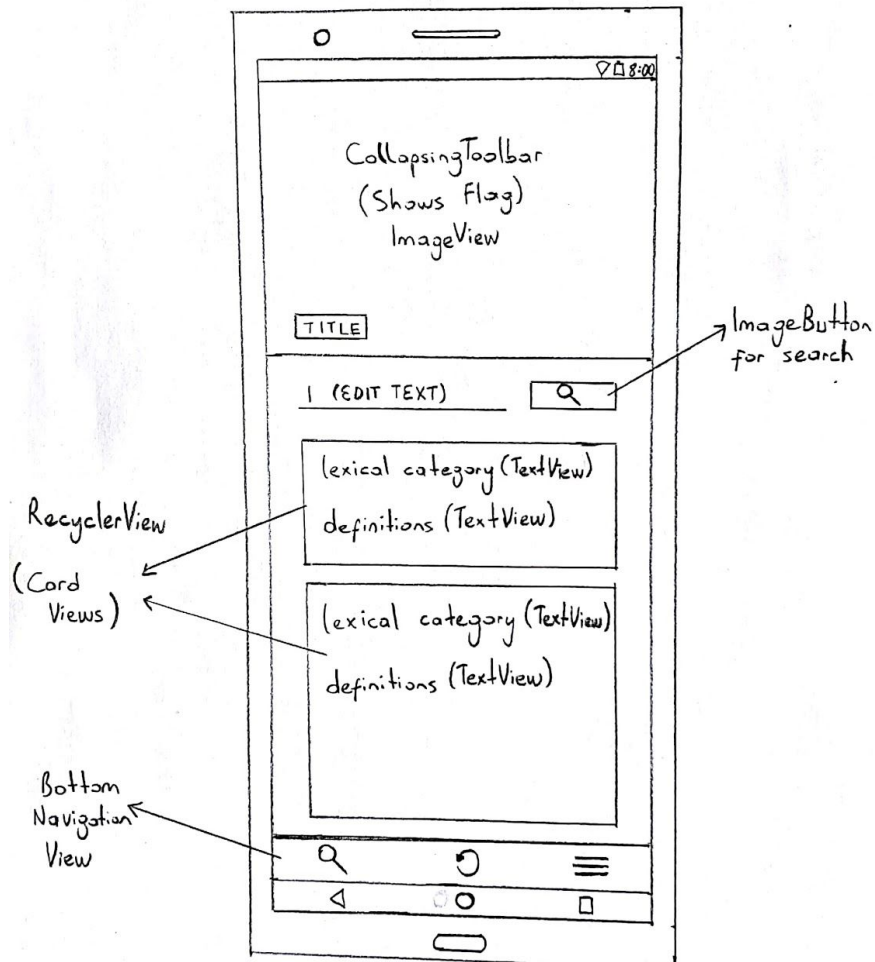 8:00
CollapsingToolbar
(Shows Flag)
ImageView
TITLE
ImageButton
for search
(EDIT TEXT)
lexical category (TextView)
definitions (TextView)
RecyclerView
(Card
Views)
lexical category (TextView)
definitions (TextView)
Bottom
Navigation
View